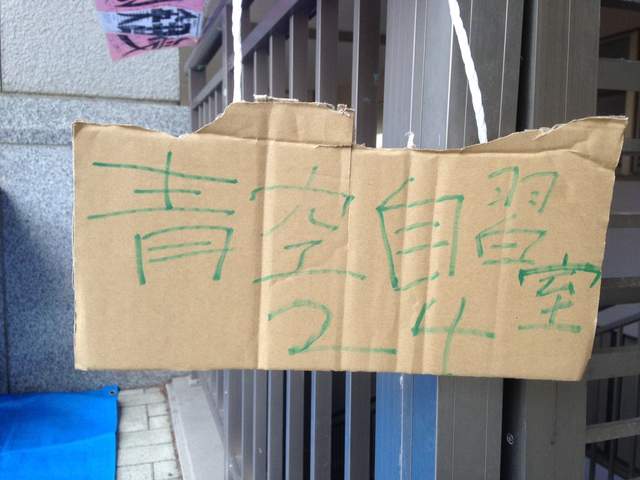 青空自習室
24